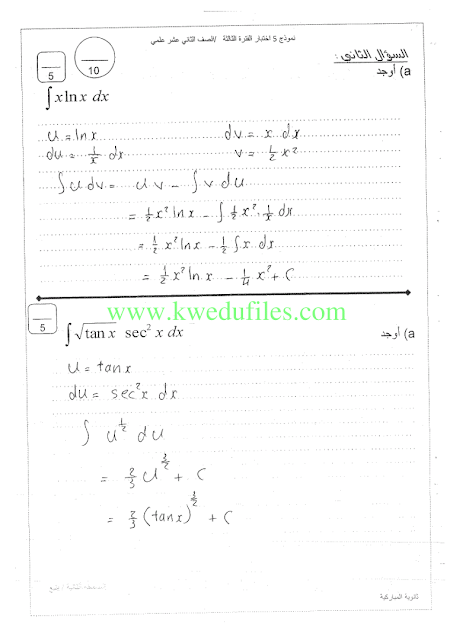 نموذج 5 اختبار الفترة الثالثة /الصف الثاني عشر علمي
السؤال الثاني :
10
5
a) أوجد
∫ x ln x dx
u = ln x dv = x dx
du = 1/x dx v = 1/2 x²
∫ u dv = u v − ∫ v du
= 1/2 x² ln x − ∫ 1/2 x² · 1/x dx
= 1/2 x² ln x − 1/2 ∫ x dx
= 1/2 x² ln x − 1/4 x² + C
www.kwedufiles.com
5
a) أوجد
∫ √tan x sec² x dx
u = tan x
du = sec² x dx
∫ u^(1/2) du
= 2/3 u^(3/2) + C
= 2/3 (tan x)^(3/2) + C
ثانوية المباركية